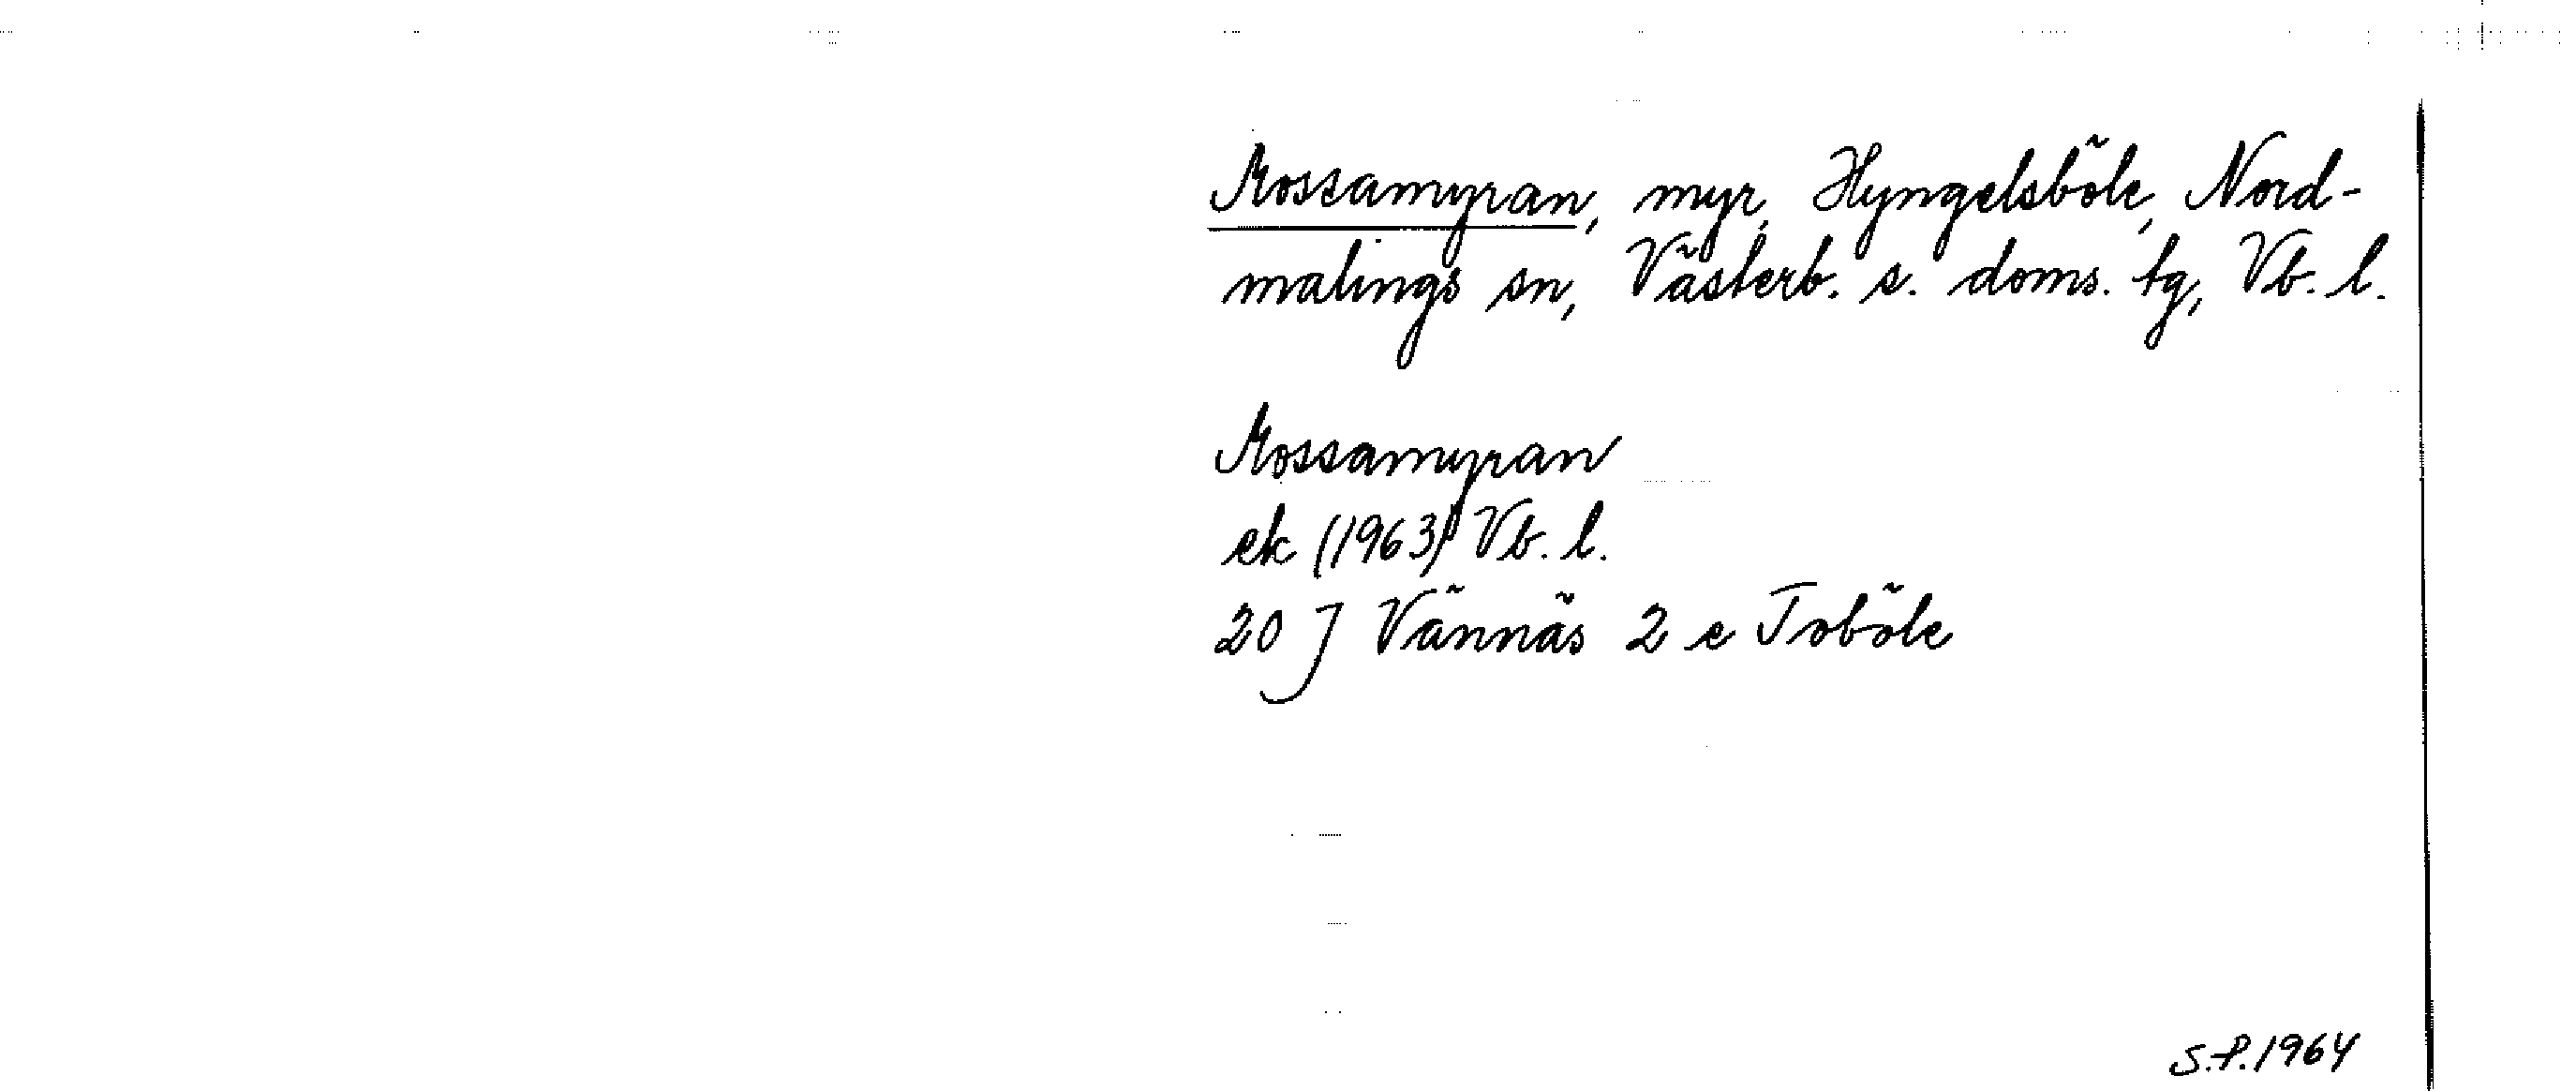 Mossamyran, myr, Hyngelsböle, Nord-
malings sn, Västerb. s. doms. tg, Vb. l.
Mossamyran
ek (1963) Vb. l.
20 J Vännäs 2 e Toböle
S.P.1964